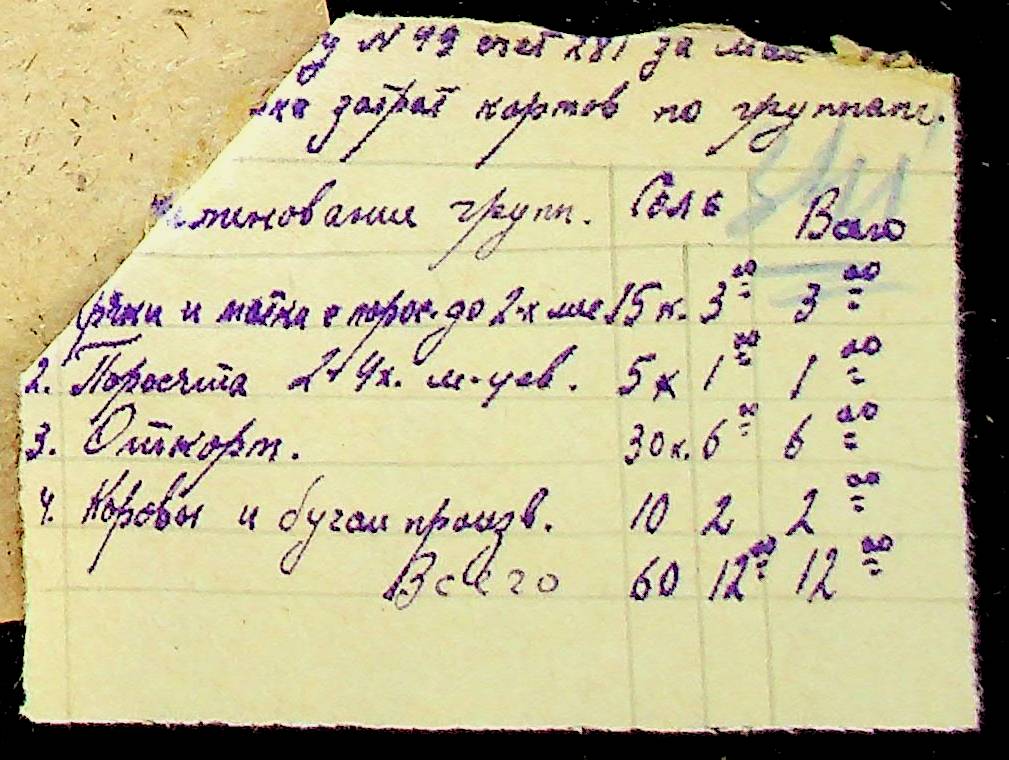 у N 49 счет 281 за май
затрат кормов по группам.
именование групп. Соль Всего
и матки с порос. до 2-х мес 15 к. 3 00 3 00
2. Поросята 2-4х. м-цев. 5 к 1 00 1 00
3. Откорм. 30 к. 6 00 6 00
4. Коровы и бугаи произв. 10 2 2 00
Всего 60 12 00 12 00